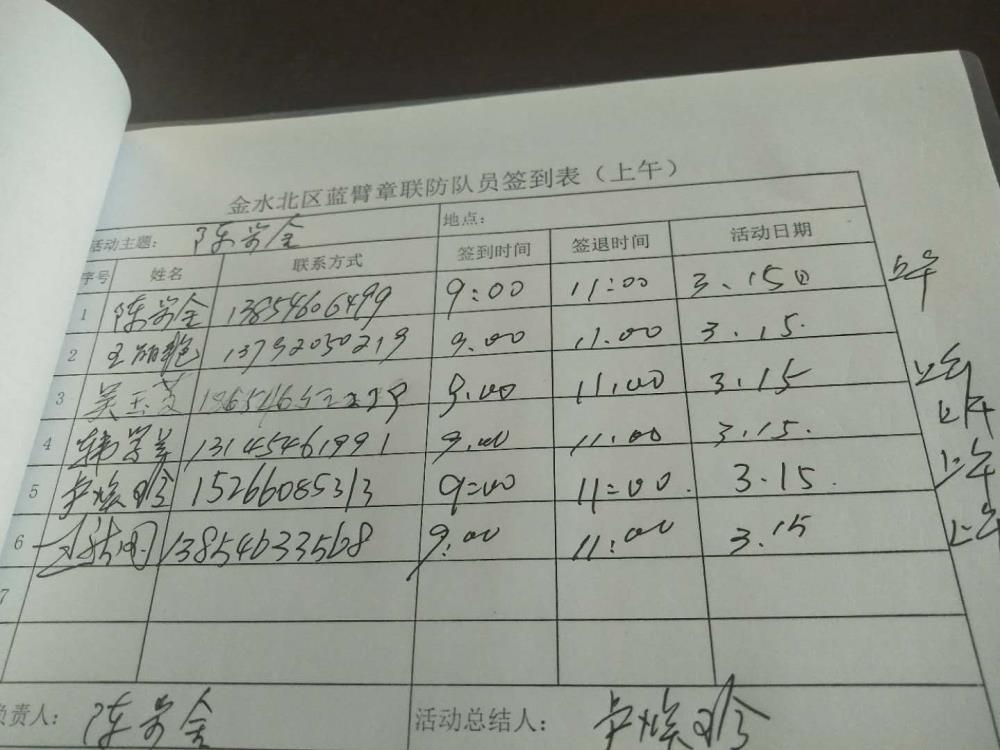 金水北区蓝臂章联防队员签到表（上午）
活动主题： 陈 金 地点：
序号 姓名 联系方式 签到时间 签退时间 活动日期
1 陈 金 13854606499 9:00 11:00 3.15日 上午
2 王 艳 13792050219 9.00 11.00 3.15.
3 吴玉芝 9.00 11.00 3.15 上午
4 韩 兰 13145461991 9.00 11.00 3.15. 上午
5 卢焕 15266085313 9:00 11:00. 3.15. 上午
6 13854633568 9:00 11:00 3.15 上午
7
负责人： 陈 金 活动总结人： 卢焕